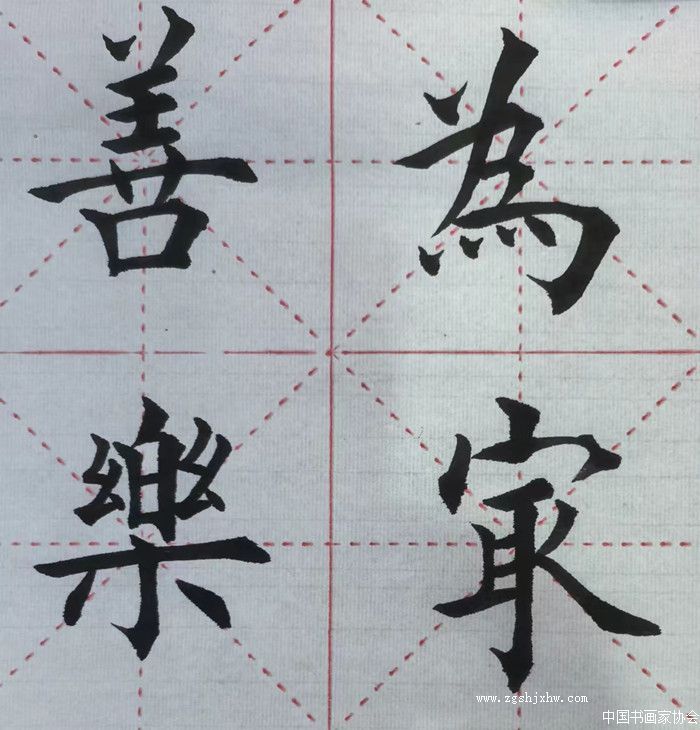 為善
㝡樂
www.zgshjxhw.com
中国书画家协会